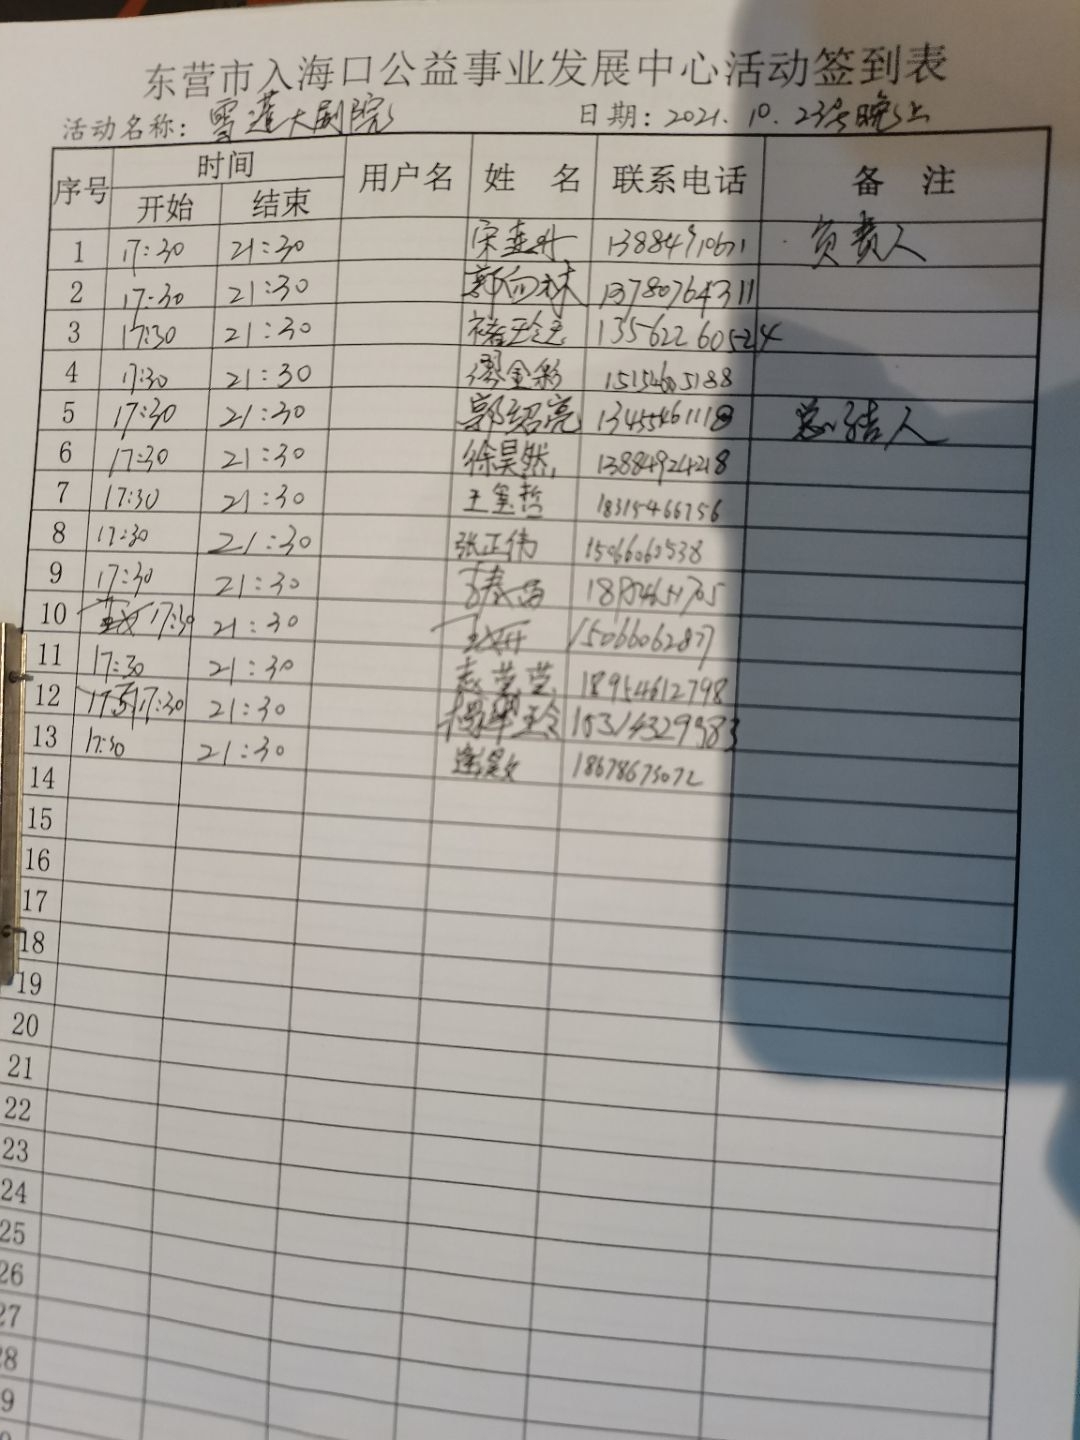 东营市入海口公益事业发展中心活动签到表
活动名称: 雪莲大剧院 日期: 2021.10.23号晚上
序号 时间 用户名 姓 名 联系电话 备 注
开始 结束
1 17:30 21:30 负责人
2 17:30 21:30 13780764311
3 17:30 21:30 13562260524
4 17:30 21:30 金彩 15154605188
5 17:30 21:30 郭绍亮 13455461118 总结人
6 17:30 21:30 徐昊然 13884924218
7 17:30 21:30 王玺哲 18315466756
8 17:30 21:30 张正伟 15066060538
9 17:30 21:30
10 17:30 21:30 15066062877
11 17:30 21:30 赵莹莹 18954612798
12 17:30 21:30 15314329583
13 17:30 21:30 18678675072
14
15
16
17
18
19
20
21
22
23
24
25
26
27
28